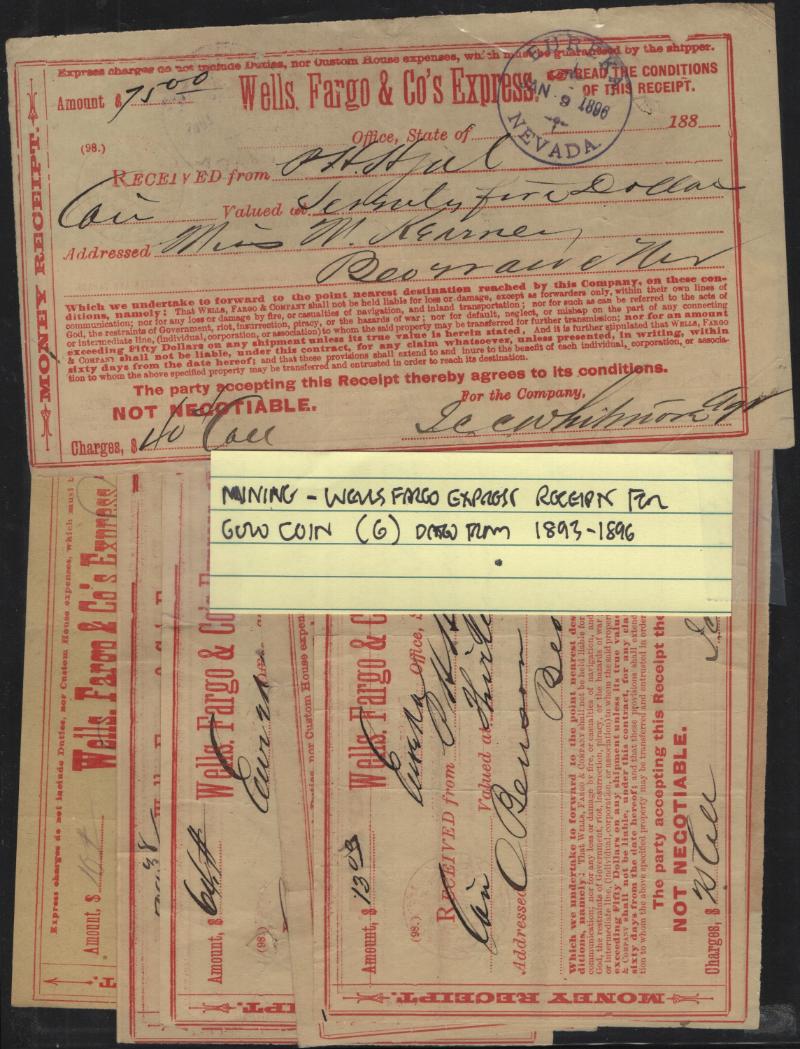 Express charges do not include Duties, nor Custom House expenses, which must be guaranteed by the shipper.
Amount $ 75 00
Wells, Fargo & Co's Express.
READ THE CONDITIONS
OF THIS RECEIPT.
EUREKA
JAN 9 1896
NEVADA
(98.)
Office, State of 188
RECEIVED from
Coin Valued at Seventy five Dollars
Addressed Miss M. Kearney
Beowawe Nev
Which we undertake to forward to the point nearest destination reached by this Company, on these con-
ditions, namely: That WELLS, FARGO & COMPANY shall not be held liable for loss or damage, except as forwarders only, within their own lines of
communication; nor for any loss or damage by fire, or casualties of navigation, and inland transportation; nor for such as can be referred to the acts of
God, the restraints of Government, riot, insurrection, piracy, or the hazards of war; nor for default, neglect, or mishap on the part of any connecting
or intermediate line, (individual, corporation, or association) to whom the said property may be transferred for further transmission; nor for an amount
exceeding Fifty Dollars on any shipment unless its true value is herein stated. And it is further stipulated that WELLS, FARGO
& COMPANY shall not be liable, under this contract, for any claim whatsoever, unless presented, in writing, within
sixty days from the date hereof; and that these provisions shall extend to and inure to the benefit of each individual, corporation, or associa-
tion to whom the above specified property may be transferred and entrusted in order to reach its destination.
The party accepting this Receipt thereby agrees to its conditions.
NOT NEGOTIABLE.
For the Company,
Charges, $ 40 Coll
Whitmore Agt
MONEY RECEIPT.
MINING - WELLS FARGO EXPRESS RECEIPTS FOR
GOLD COIN (6) DATED FROM 1893-1896
Express charges do not include Duties, nor Custom House expenses, which must
Wells, Fargo & Co's Express
Amount, $
Wells, Fargo & Co
Eureka
Amount, $
(98.)
nor Custom House expen
Wells, Fargo & C
Amount, $ 13 03
Eureka Office, S
(98.)
RECEIVED from
Coin Valued at
Addressed Benson
Beo
Which we undertake to forward to the point nearest des
ditions, namely: That WELLS, FARGO & COMPANY shall not be held liable for
communication; nor for any loss or damage by fire, or casualties of navigation, and
God, the restraints of Government, riot, insurrection, piracy, or the hazards of war;
or intermediate line, (individual, corporation, or association) to whom the said proper
exceeding Fifty Dollars on any shipment unless its true value
& COMPANY shall not be liable, under this contract, for any cla
sixty days from the date hereof; and that these provisions shall extend
tion to whom the above specified property may be transferred and entrusted in order
The party accepting this Receipt the
NOT NEGOTIABLE.
Charges, $ Coll
MONEY RECEIPT.